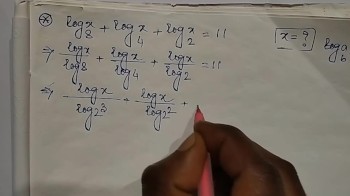 * log₈x + log₄x + log₂x = 11 x = ?
⇒ logx/log8 + logx/log4 + logx/log2 = 11
⇒ logx/log2³ + logx/log2² +